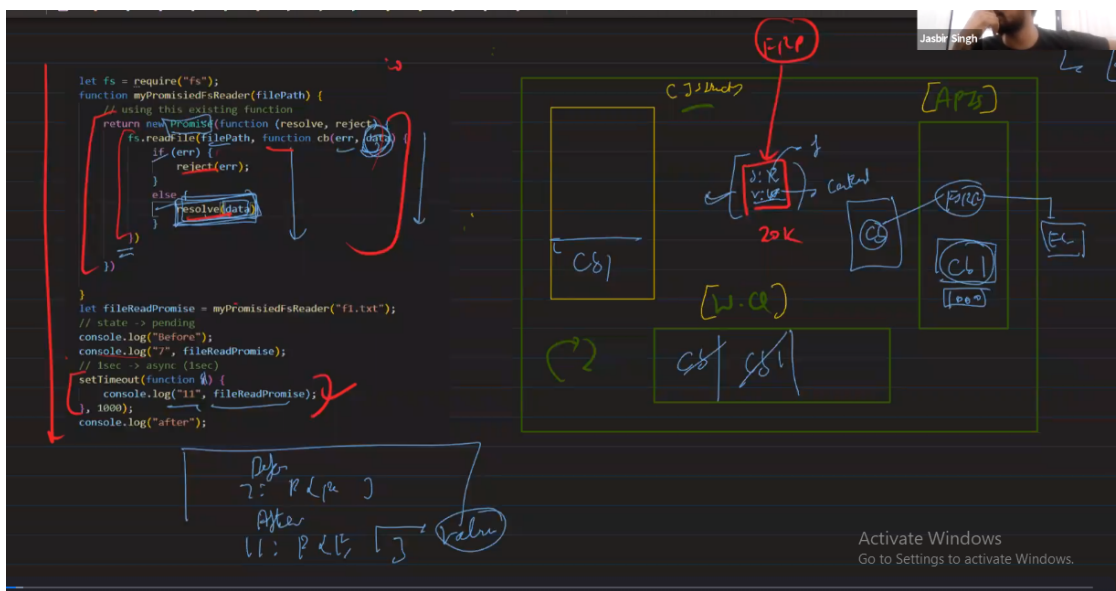 Jasbir Singh
let fs = require("fs");
function myPromisiedFsReader(filePath) {
// using this existing function
return new Promise(function (resolve, reject)
fs.readFile(filePath, function cb(err, data) {
if (err) {
reject(err);
}
else {
resolve(data)
}
})
})
}
let fileReadPromise = myPromisiedFsReader("f1.txt");
// state -> pending
console.log("Before");
console.log("7", fileReadPromise);
// 1sec -> async (1sec)
setTimeout(function () {
console.log("11", fileReadPromise);
}, 1000);
console.log("after");
After
Value
FRP
20K
[APIs]
Cb
Cb1
1000
EC
Cb1
[W.Q]
Cb Cb1
Activate Windows
Go to Settings to activate Windows.